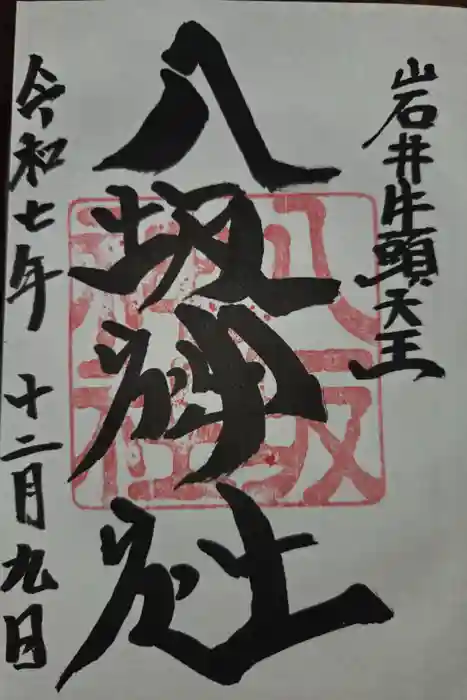 岩井牛頭天王
八坂神社
八坂神社
令和七年 十二月九日